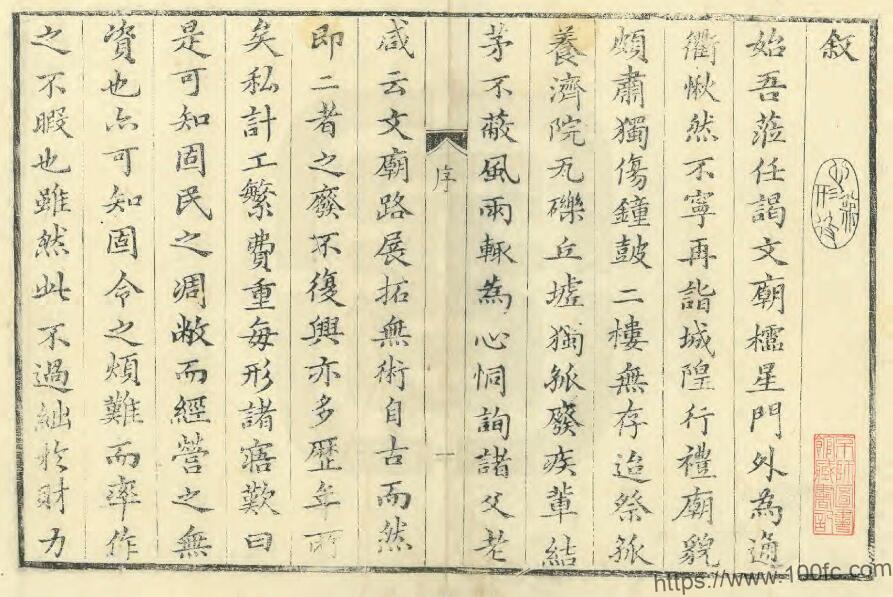 敘
始吾蒞任謁文廟櫺星門外為通
衢愀然不寧再詣城隍行禮廟貌
頗肅獨傷鐘鼓二樓無存迨祭孤
養濟院瓦礫丘墟獨孤廢疾輩結
茅不蔽風雨輒為心恫詢諸父老
序 一
咸云文廟路展拓無術自古而然
即二者之廢不復興亦多歷年所
矣私計工繁費重每形諸寤歎曰
是可知固民之凋敝而經營之無
資也亦可知固令之煩難而率作
之不暇也雖然此不過絀於財力
京師圖書
館藏書記
https://www.100fc.com